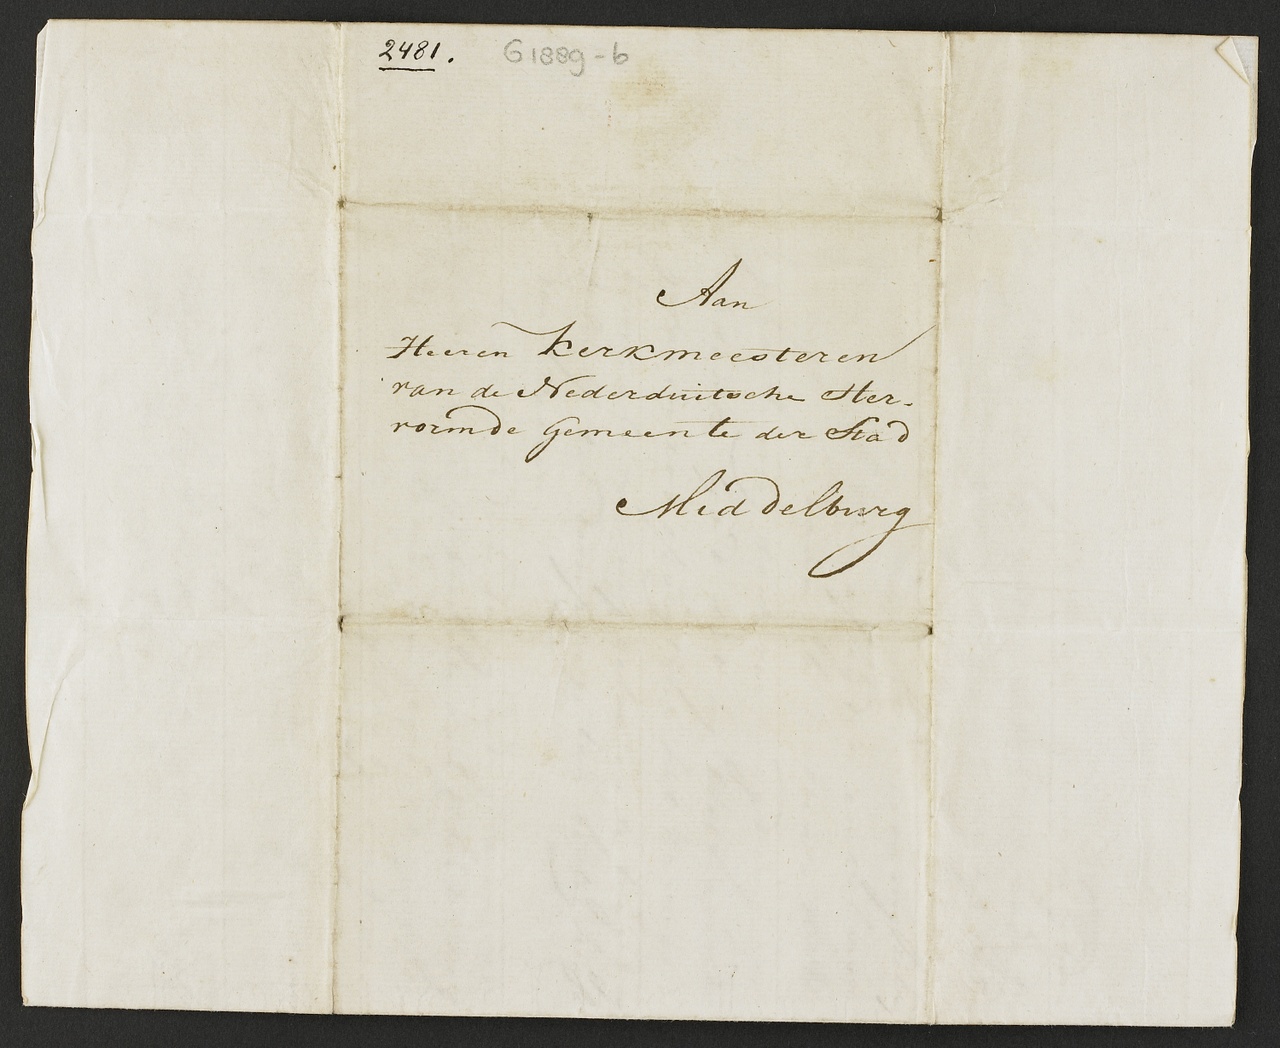 2481. G1889-b
Aan
Heeren Kerkmeesteren
van de Nederduitsche Her-
vormde Gemeente der Stad
Middelburg